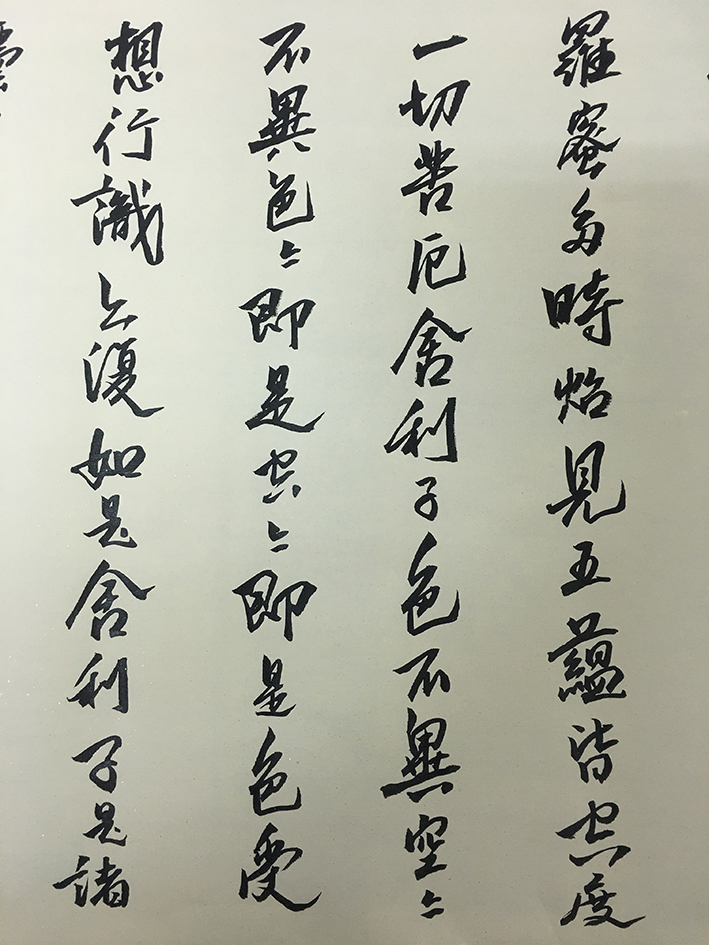 羅蜜多時焰見五蘊皆空度
一切苦厄舍利子色不異空〻
不異色〻即是空〻即是色受
想行識亦復如是舍利子是諸